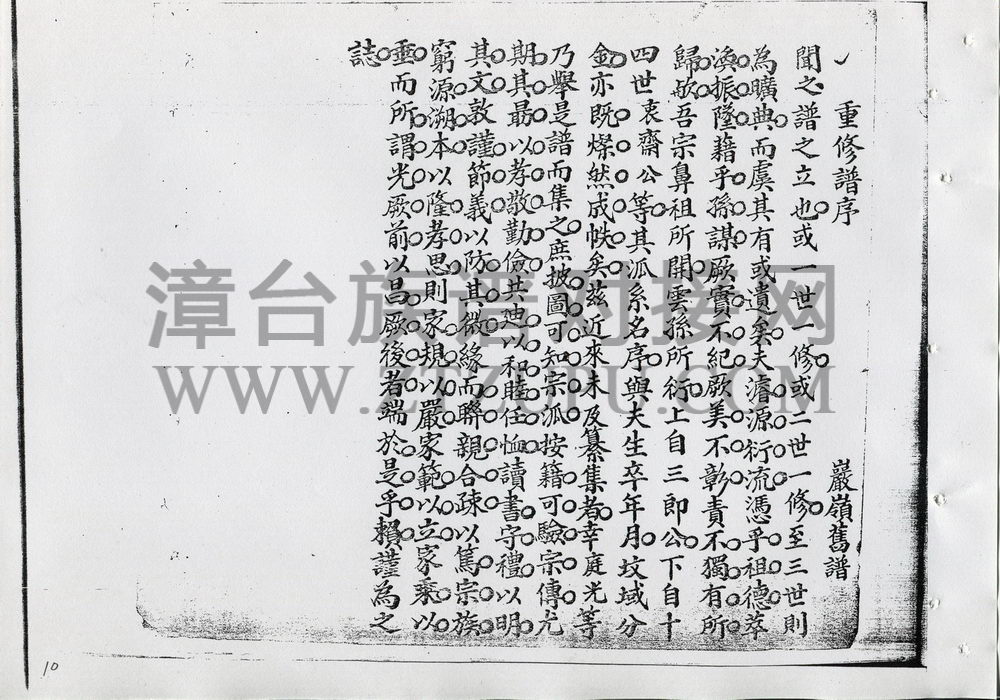 重修譜序
巖嶺舊譜
聞之譜之立也或一世一修或二世一修至三世則
為曠典而虞其有或遺矣夫濬源衍流憑乎祖德萃
渙振隆藉乎孫謀厥實不紀厥美不彰責不獨有所
歸歟吾宗鼻祖所開雲孫所衍上自三郎公下自十
四世衷齋公等其派系名序與夫生卒年月坟域分
金亦既燦然成帙矣茲近來未及纂集者幸庭光等
乃舉是譜而集之庶披圖可知宗派按籍可驗宗傳尤
期其最以孝敬勤儉共迪以和睦任恤讀書守禮以明
其文敦謹節義以防其微緣而聯親合疎以篤宗族
窮源溯本以隆孝思則家規以嚴家範以立家乘以
垂而所謂光厥前以昌厥後者端於是乎賴謹為之
誌
漳台族谱对接网
WWW.ZTZUPU.COM
10